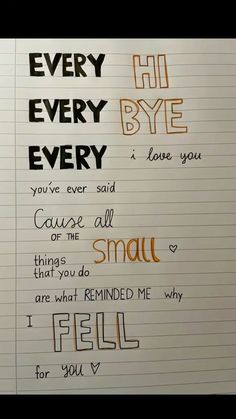 EVERY HI
EVERY BYE
EVERY i love you
you've ever said
Cause all
OF THE small
things
that you do
are what REMINDED ME why
I FELL
for you